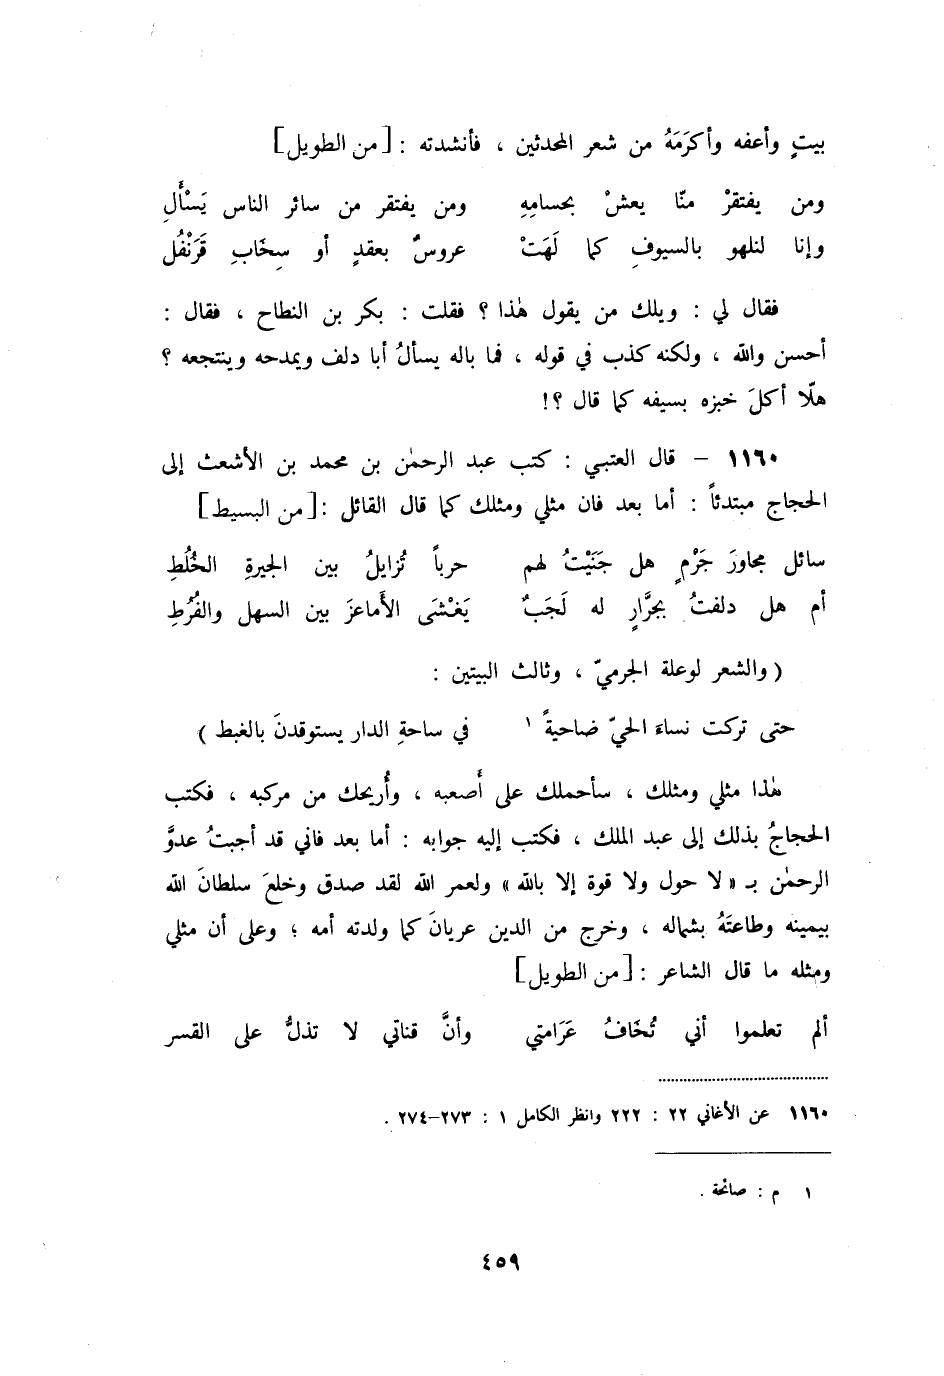 بيتٍ وأعفه وأكرَمَهُ من شعر المحدثين ، فأنشدته : [من الطويل]
ومن يفتقرْ منّا يعشْ بحسامِهِ ومن يفتقر من سائر الناس يَسْأَلِ
وإنا لنلهو بالسيوفِ كما لَهَتْ عروسٌ بعقدٍ أو سِخَابِ قَرَنْفُلِ
فقال لي : ويلك من يقول هٰذا ؟ فقلت : بكر بن النطاح ، فقال :
أحسن والله ، ولكنه كذب في قوله ، فما باله يسألُ أبا دلف ويمدحه وينتجعه ؟
هلّا أكلَ خبزه بسيفه كما قال ؟!
١١٦٠ – قال العتبي : كتب عبد الرحمٰن بن محمد بن الأشعث إلى
الحجاج مبتدئاً : أما بعد فان مثلي ومثلك كما قال القائل : [من البسيط]
سائل مجاورَ جَرْمٍ هل جَنَيْتُ لهم حرباً تُزايلُ بين الجيرةِ الخُلُطِ
أم هل دلفتُ بجرَّارٍ له لَجَبٌ يَغْشَى الأَماعزَ بين السهل والفُرُطِ
( والشعر لوعلة الجرميّ ، وثالث البيتين :
حتى تركت نساءَ الحيّ ضاحيةً ١ في ساحةِ الدار يستوقدنَ بالغبط )
هٰذا مثلي ومثلك ، سأحملك على أَصعبه ، وأُريحك من مركبه ، فكتب
الحجاجُ بذلك إلى عبد الملك ، فكتب إليه جوابه : أما بعد فاني قد أجبتُ عدوَّ
الرحمٰن بـ « لا حول ولا قوة إلا بالله » ولعمر الله لقد صدق وخلعَ سلطانَ الله
بيمينه وطاعتَهُ بشماله ، وخرج من الدين عريانَ كما ولدته أمه ؛ وعلى أن مثلي
ومثله ما قال الشاعر : [من الطويل]
ألم تعلموا أني تُخَافُ عَرَامتي وأنَّ قناتي لا تذلُّ على القسر
١١٦٠ عن الأغاني ٢٢ : ٢٢٢ وانظر الكامل ١ : ٢٧٣–٢٧٤ .
١ م : صائحة .
٤٥٩